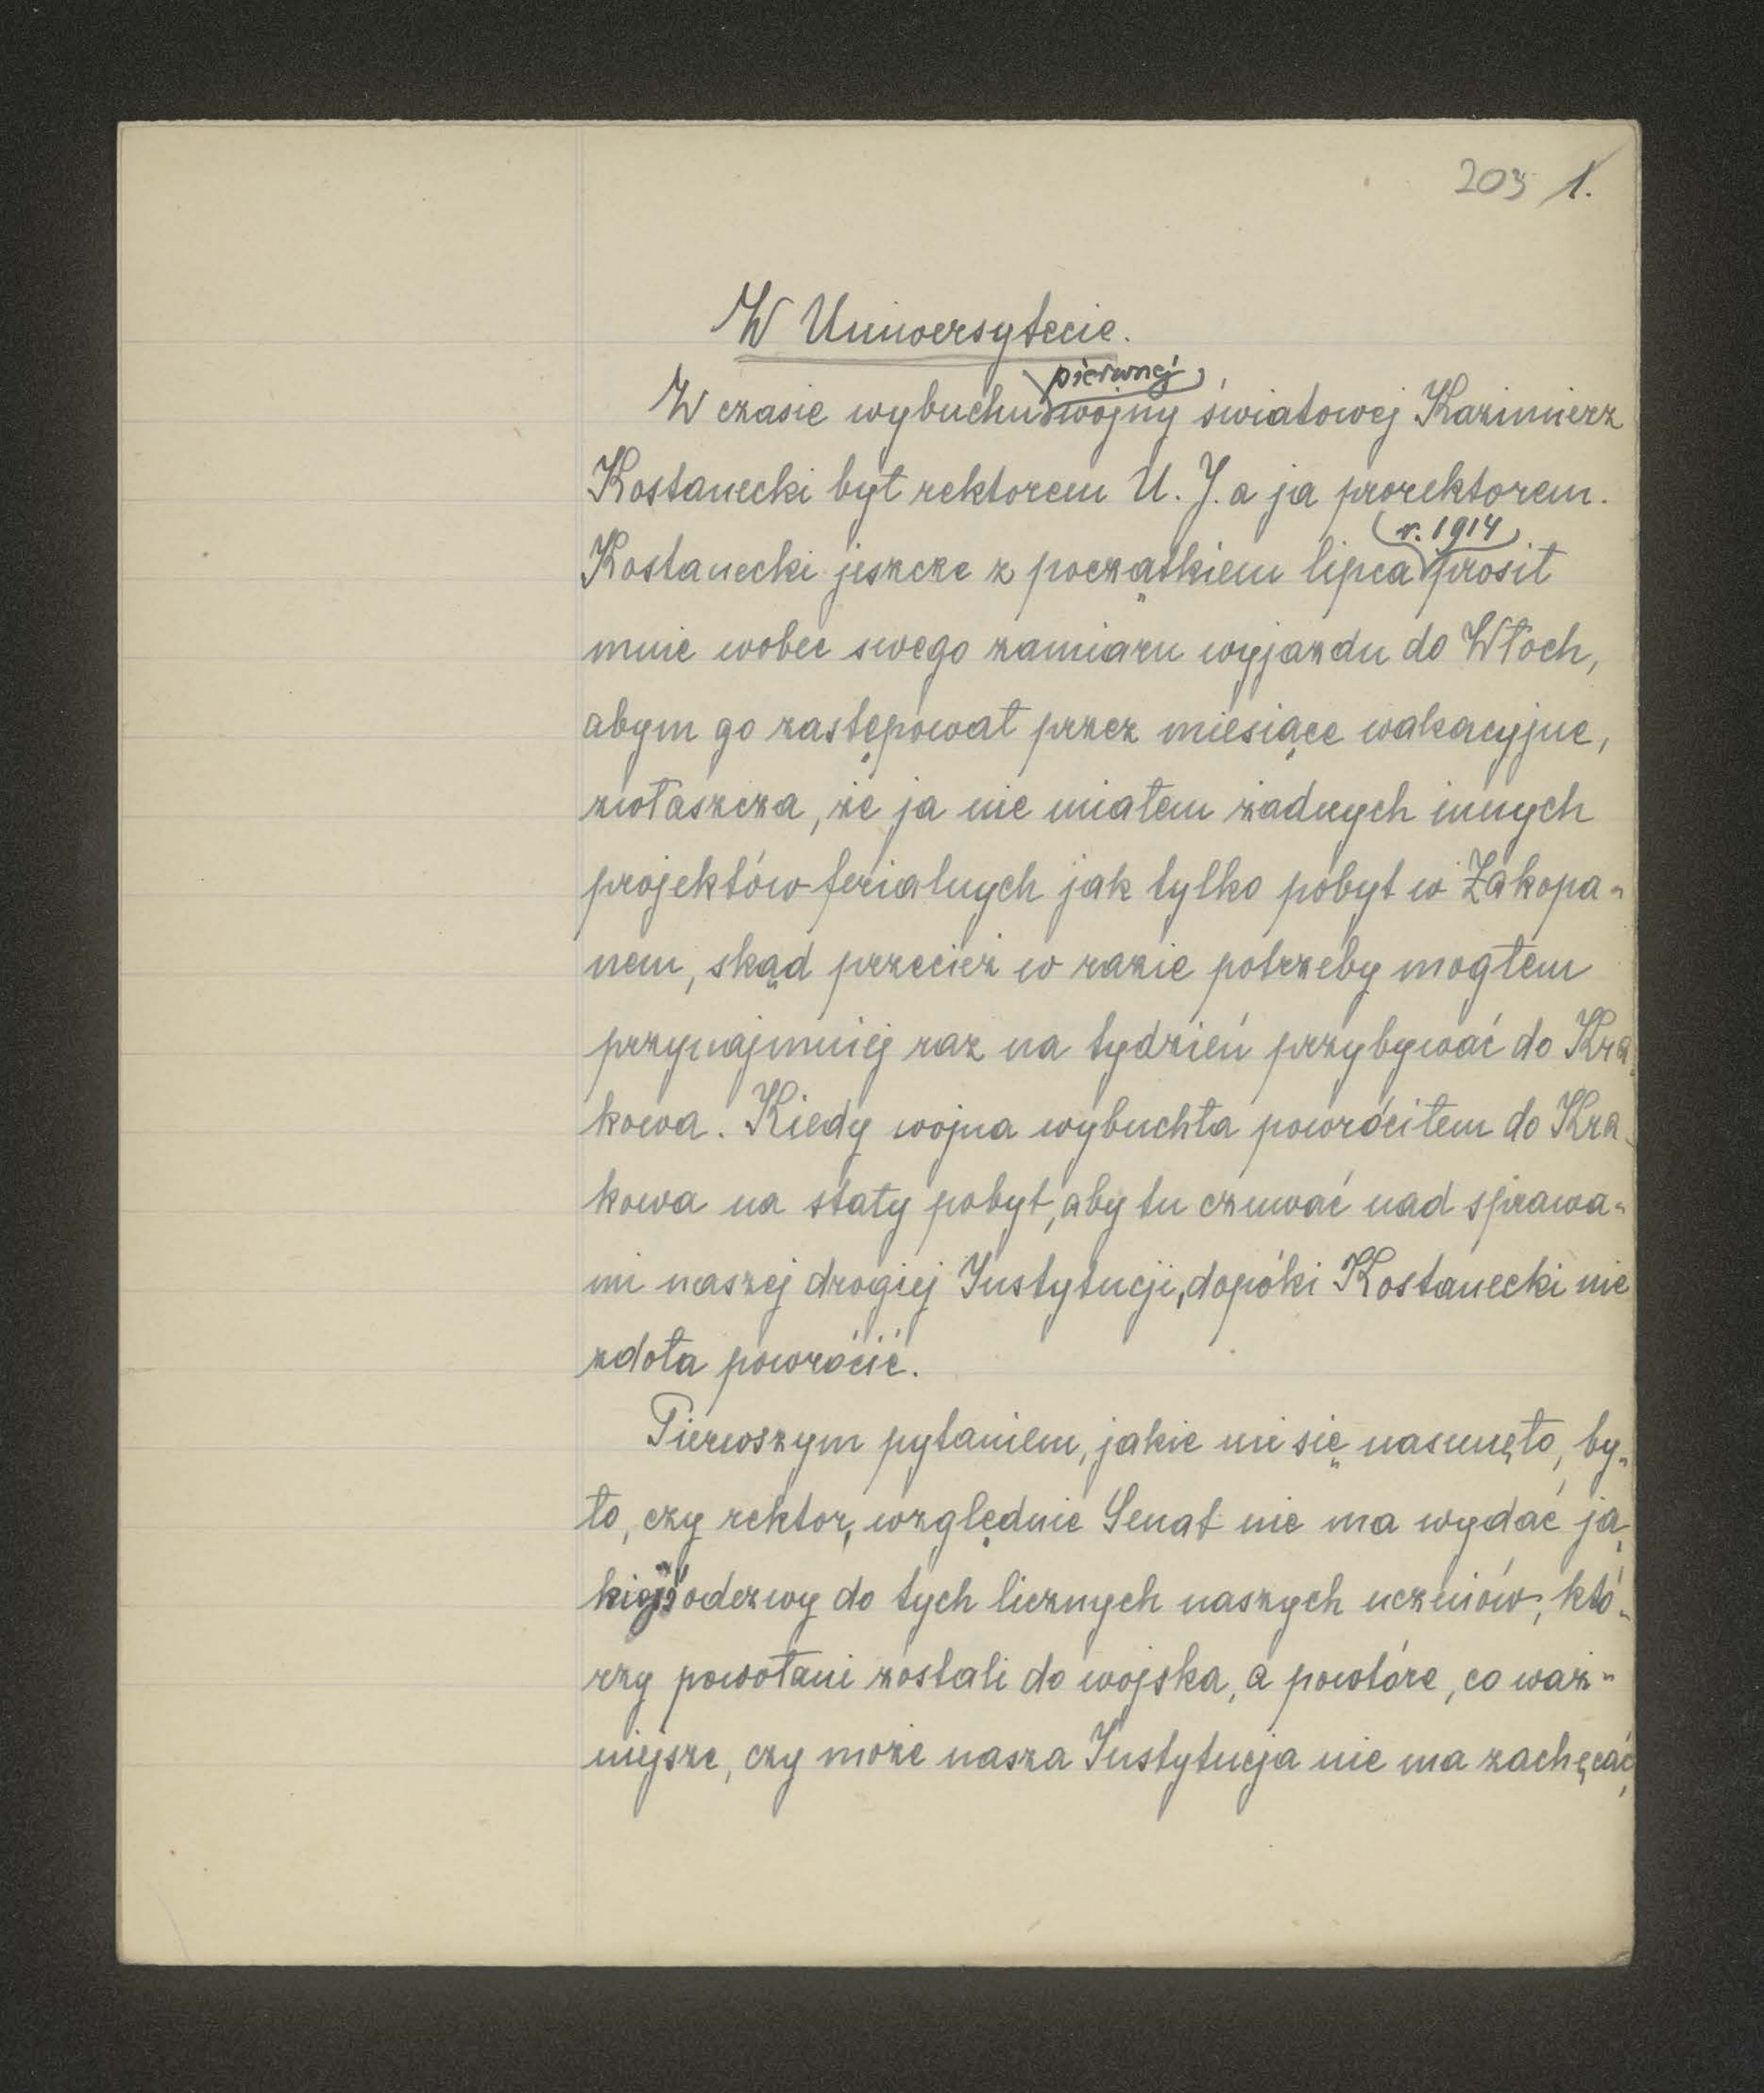 203 1.
W Uniwersytecie.
pierwszej
W czasie wybuchu wojny światowej Kazimierz
Kostanecki był rektorem U. J. a ja prorektorem.
r. 1914
Kostanecki jeszcze z początkiem lipca prosił
mnie wobec swego zamiaru wyjazdu do Włoch,
abym go zastępował przez miesiące wakacyjne,
zwłaszcza, że ja nie miałem żadnych innych
projektów ferialnych jak tylko pobyt w Zakopa-
nem, skąd przecież w razie potrzeby mogłem
przynajmniej raz na tydzień przybywać do Kra-
kowa. Kiedy wojna wybuchła powróciłem do Kra-
kowa na stały pobyt, aby tu czuwać nad sprawa-
mi naszej drogiej Instytucji, dopóki Kostanecki nie
zdoła powrócić.
Pierwszym pytaniem, jakie mi się nasunęło, by-
ło, czy rektor, względnie Senat nie ma wydać ja-
kiejś odezwy do tych licznych naszych uczniów, któ-
rzy powołani zostali do wojska, a powtóre, co waż-
niejsze, czy może nasza Instytucja nie ma zachęcać,